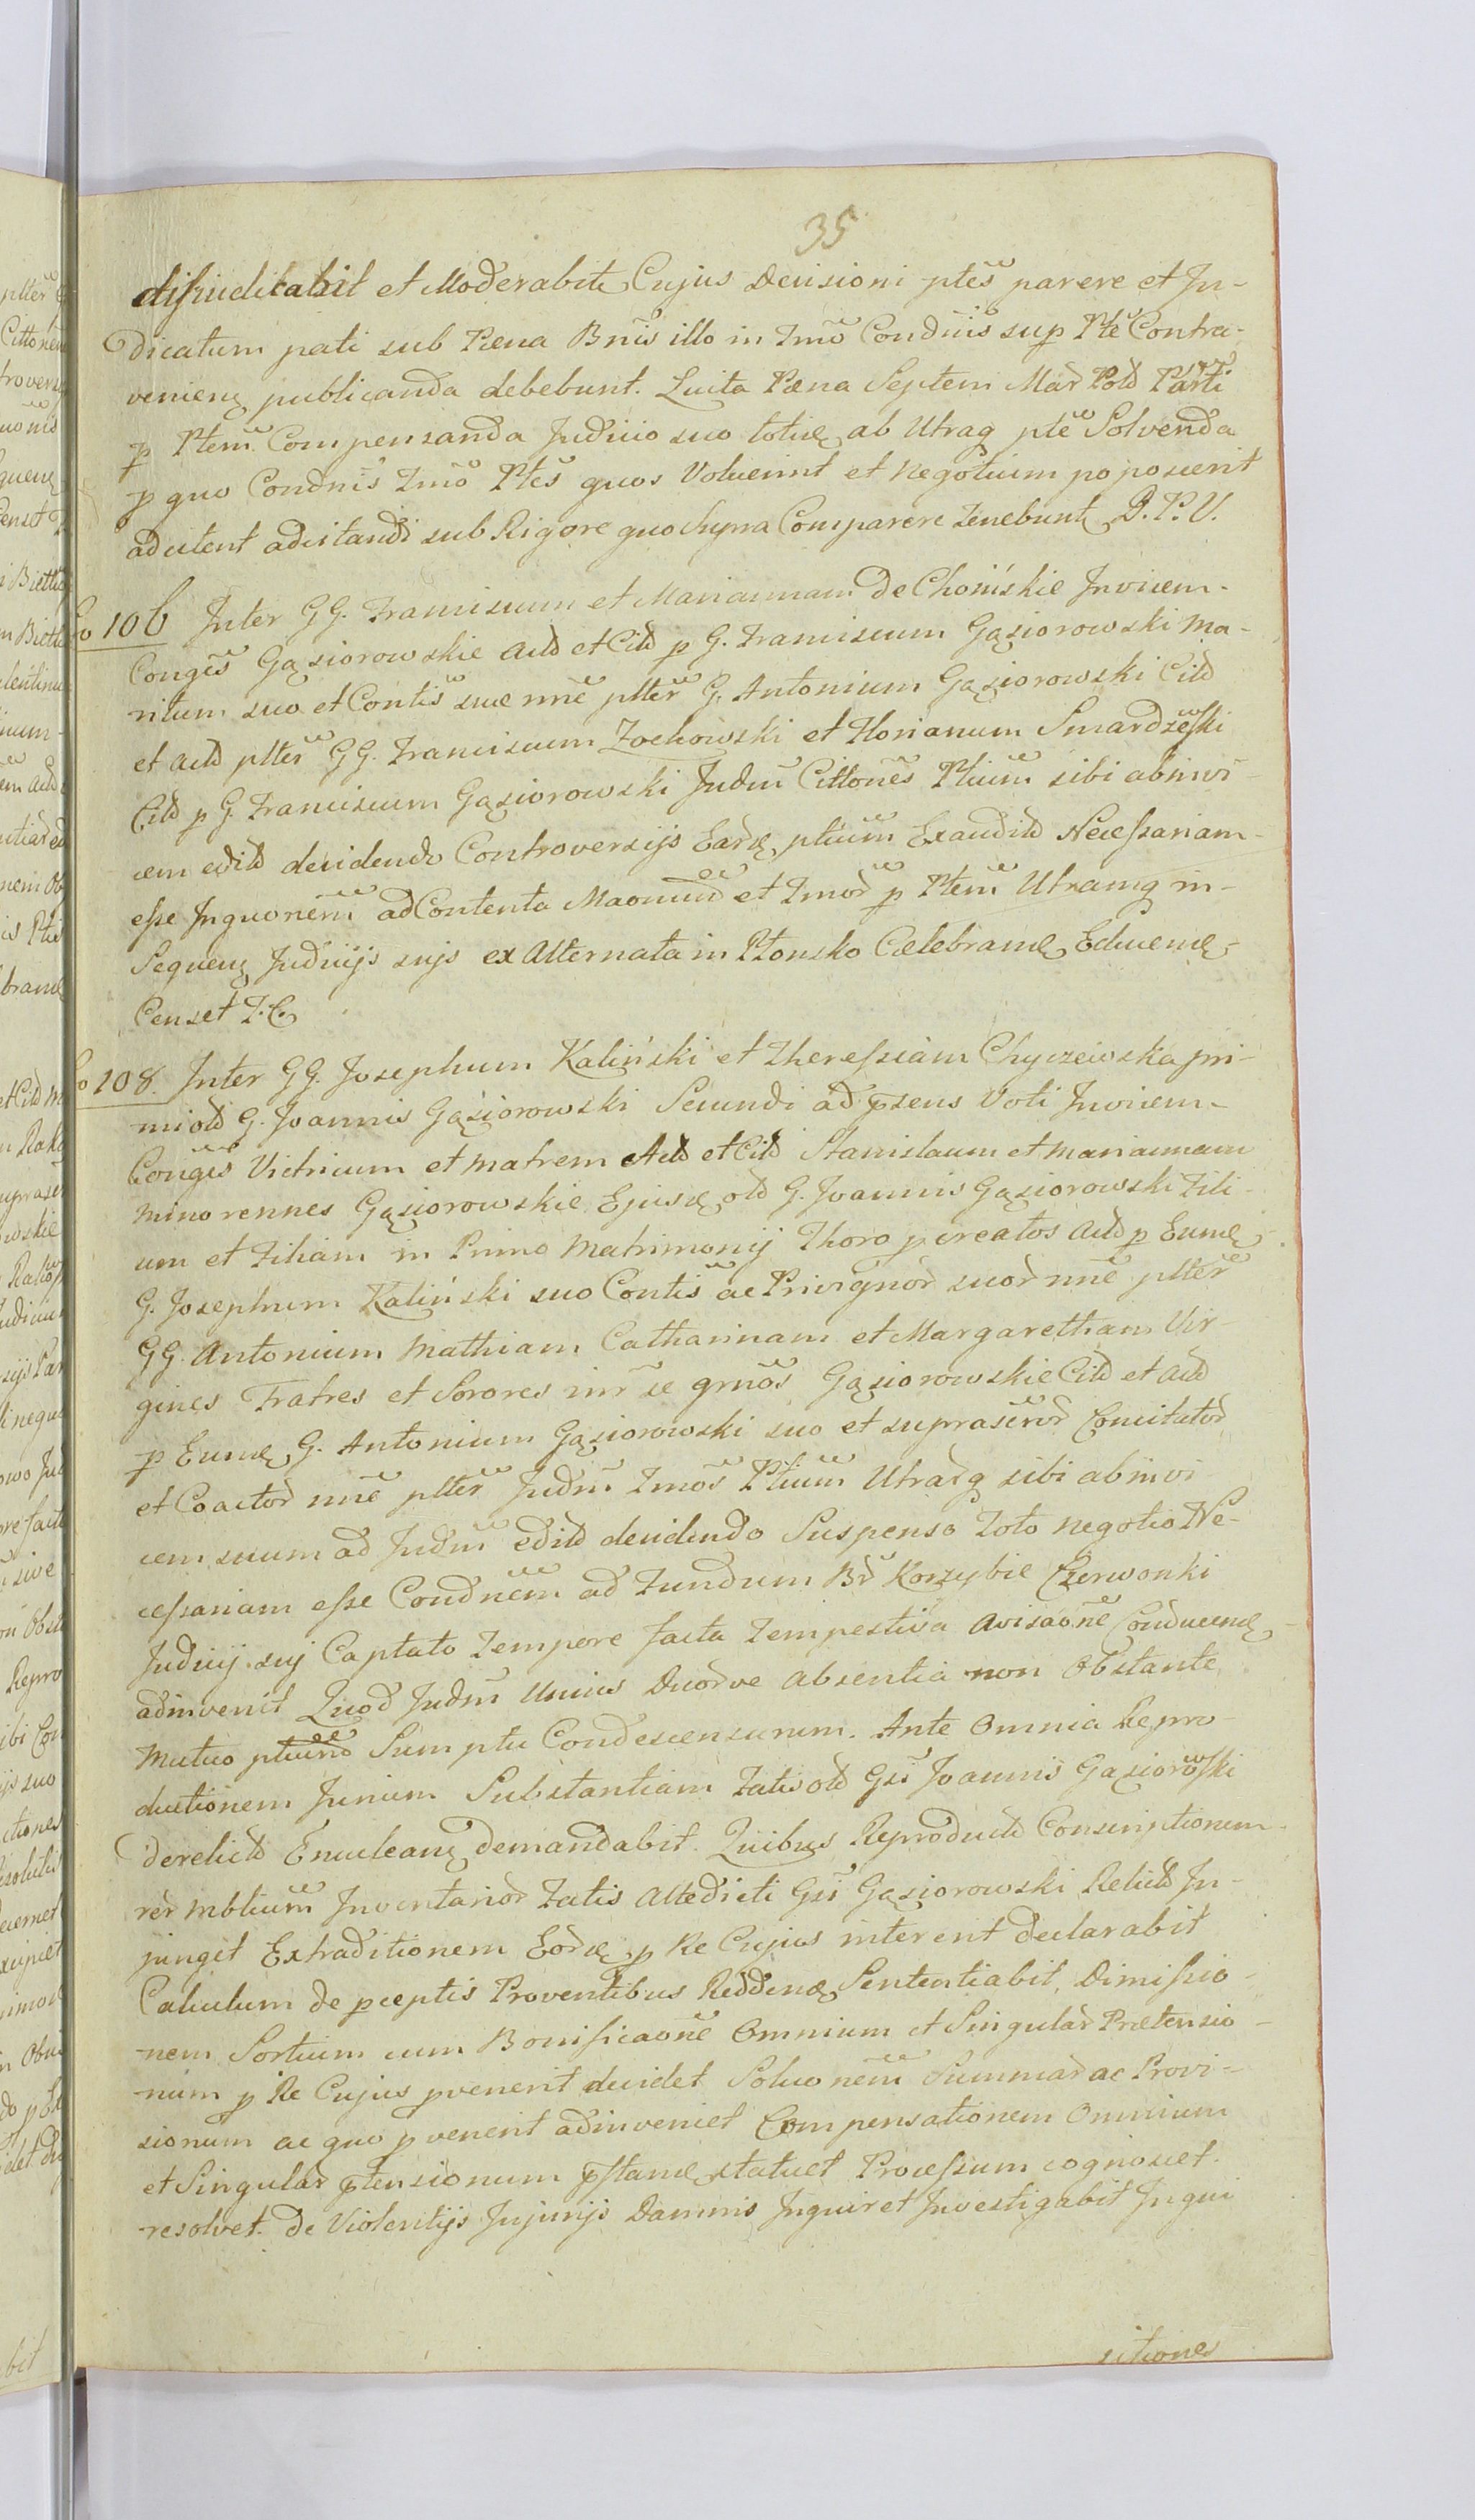 35
dijudicabit et Moderabit Cujus Decisioni ptes parere et Ju-
dicatum pati sub Pæna Bnis illo in Tmo Condnis sup Pte Contra-
venien publicanda debebunt. Luita Pæna Septem Mar Pold Parti
p Ptem Compensanda Judicio suo toties ab Utraq pte Solvenda
p quo Condnis Tmo Ptes quos Voluerint et Negotium poposcerit
adcitent adcitandi sub Rigore quo Supra Comparere Tenebunt D. P. V.
106 Inter GG. Franciscum et Mariannam de Choinskie Invicem
Conges Gąsiorowskie Actd et Citd p G. Franciscum Gąsiorowski Ma-
ritum suo et Contis suæ nne plter G. Antonium Gąsiorowski Citd
et Actd plter GG. Franciscum Zochowski et Florianum Smardzewski
Citd p G. Franciscum Gąsiorowski Judm Cittones Ptium sibi abinvi-
cem edit decidendo Controversijs Eard ptium Exaudit Necessariam
esse Inquonem ad Contenta et Tmor p Ptem Utramq in
Sequen Judicijs suis ex Alternata in Płonsko Celebran Educen
Censet T. C.
108. Inter GG. Josephum Kaliński et Theressiam Chyczewska pri-
mi old G. Joannis Gąsiorowski Secundi ad psens Voti Invicem
Conges Vitricum et Matrem Actd et Citd Stanislaum et Mariannam
Minorennes Gąsiorowskie Ejusd old G. Joannis Gąsiorowski Fili-
um et Filiam in Primo Matrimonij Thoro pcreatos Actd p Eund
G. Josephum Kaliński suo Contis ac Privignor suor nne plter
GG. Antonium Mathiam Catharinam et Margaretham Vir-
gines Fratres et Sorores inr se grnos Gąsiorowskie Citd et Actd
p Eund G. Antonium Gąsiorowski suo et suprascror Concitator
et Coactor nne plter Judm Tmos Ptium Utrarq sibi abinvi
cem suum ad Judm edit decidendo Suspenso Toto negotio Ne-
cessariam esse Condnem ad Fundum Br Korzybie Czerwonki
Judicij sui Captato Tempore facta Tempestiva Avisaone Conducen
adinvenit Quod Judm Unius Duorve absentia non Obstante
Mutuo ptium Sumptu Condescensurum. Ante Omnia Repro-
ductionem Jurium Substantiam Fatis old Gsi Joannis Gąsiorowski
derelict Enuclean demandabit. Quibus Reproductis Conscriptionem
rer mblium Inventarior Fatis Attedicti Gsi Gąsiorowski Relict In-
junget Extraditionem Eord p Re Cujus intererit declarabit
Calculum de pceptis Proventibus Redden Sententiabit, Dimissio-
nem Sortium cum Bonificaone Omnium et Singular Prætensio-
num p Re Cujus pvenerit decidet Soluonem Summar ac Provi-
sionum ac quo pvenerit adinveniet Compensationem Omnium
et Singular ptensionum pstan statuet Processum cognoscet
resolvet. de Violentijs Injurijs Damnis Inquiret Investigabit Inqui
sitiones